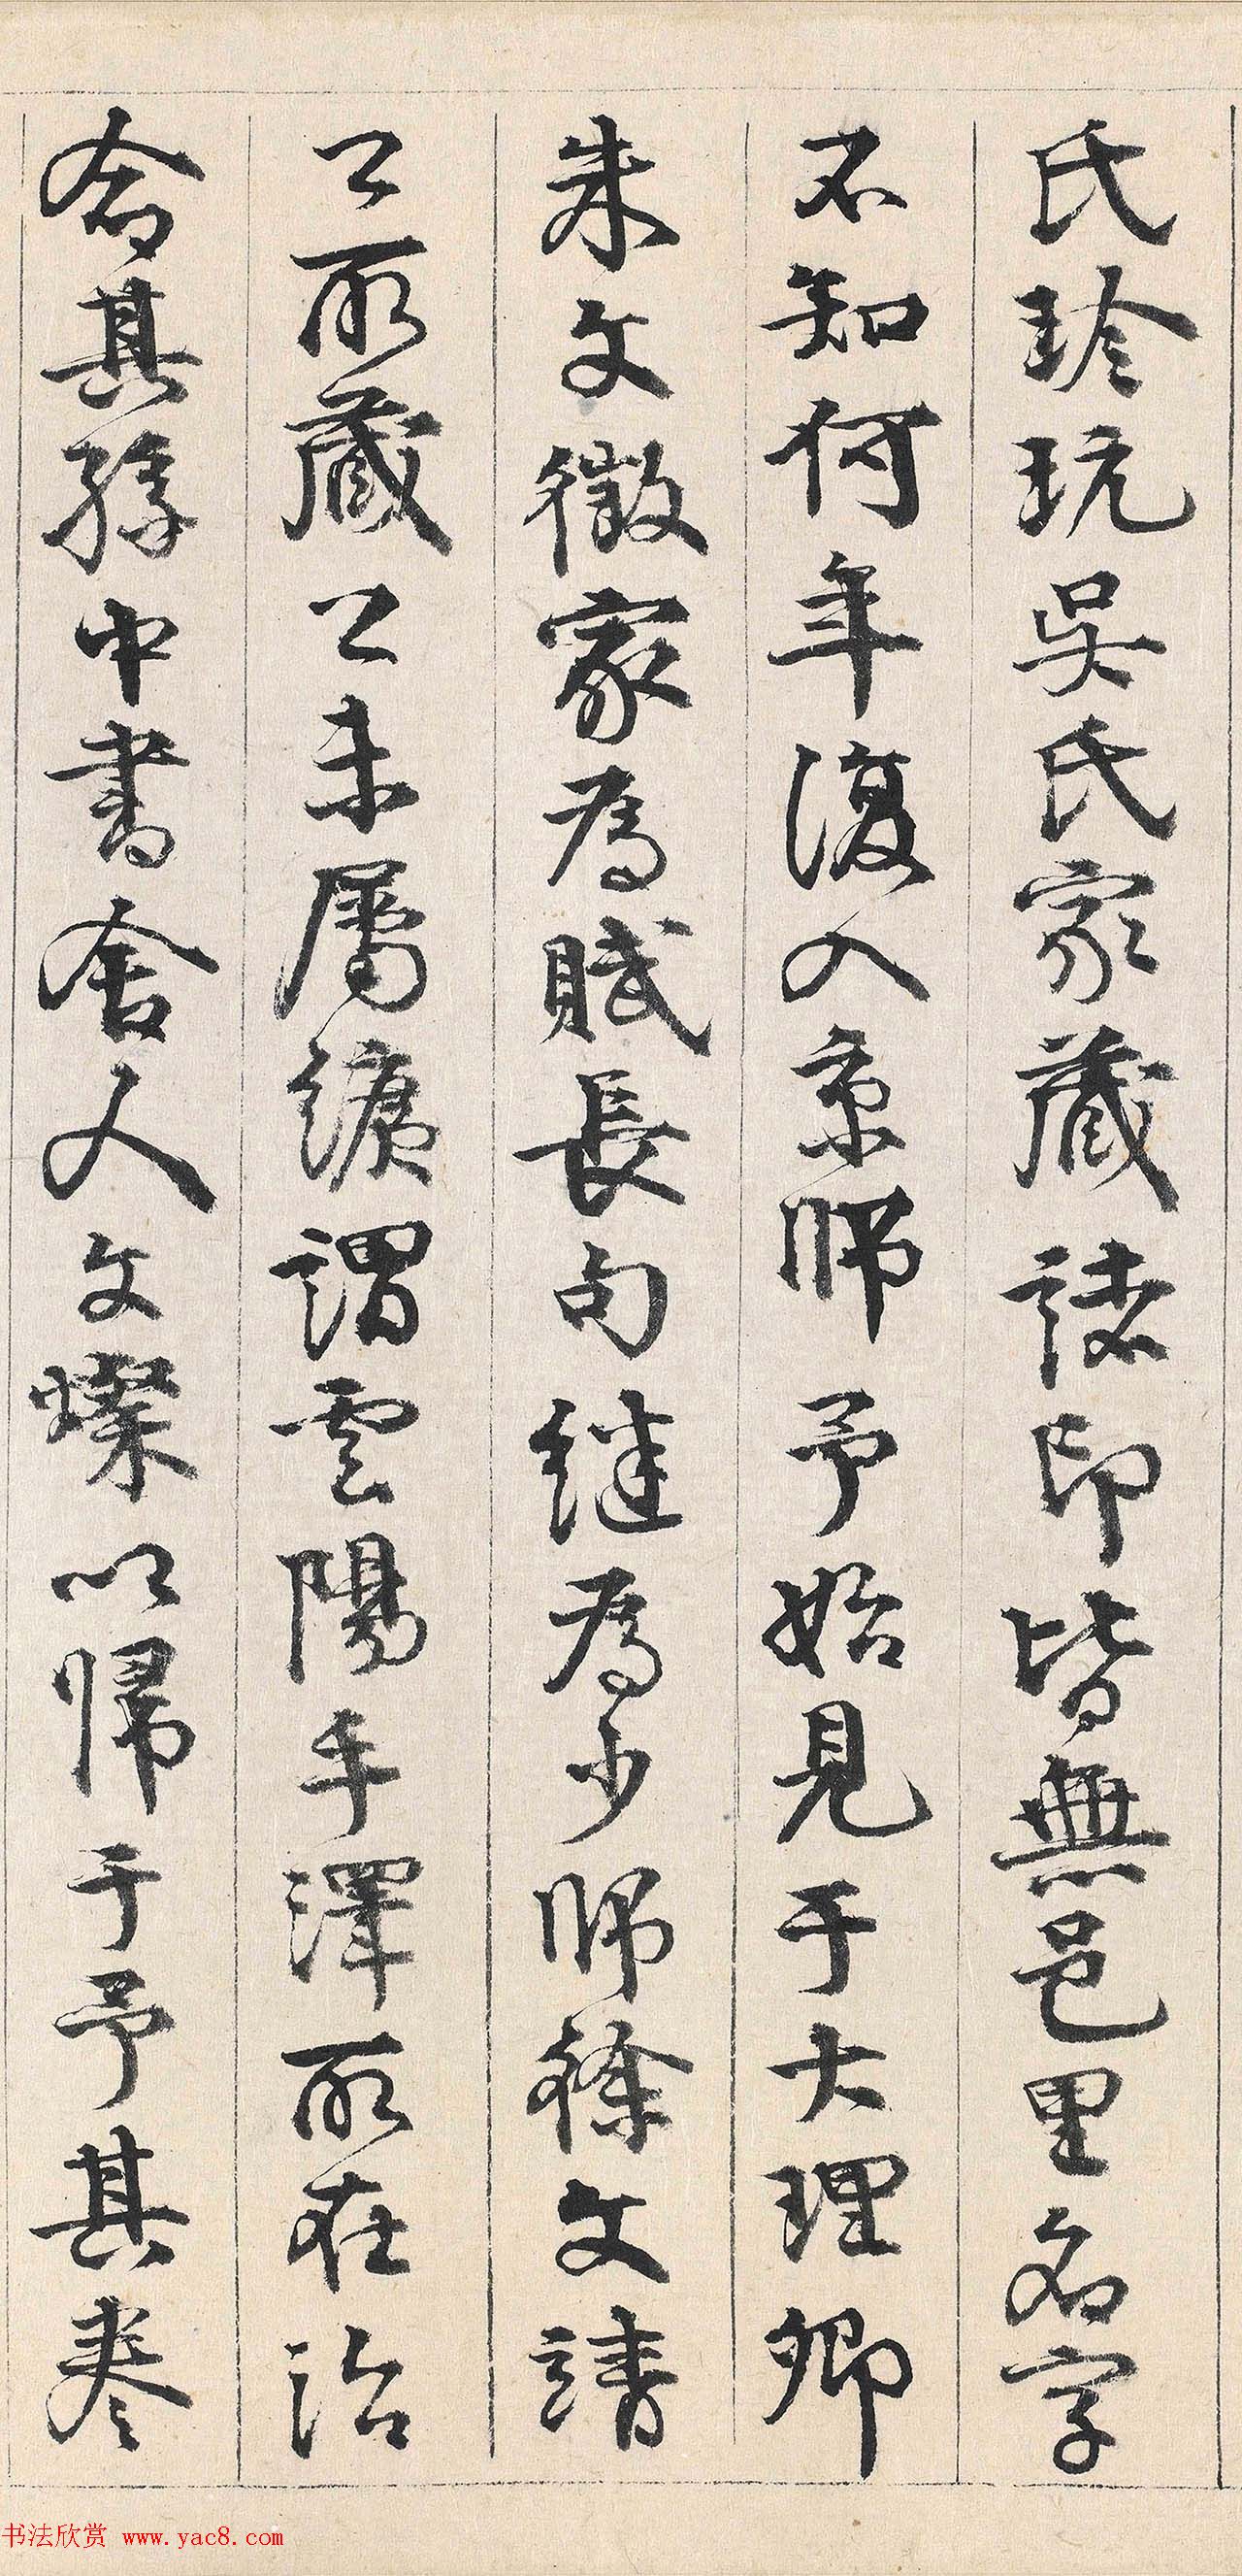 氏珍玩吳氏家藏諸印皆無邑里名字
不知何年復入京師予始見于大理卿
朱文徵家為賦長句继為少師徐文靖
公所藏公未屬纊謂雲陽手澤所在治
命其孫中書舍人文燦以歸于予其卷
书法欣赏 www.yac8.com